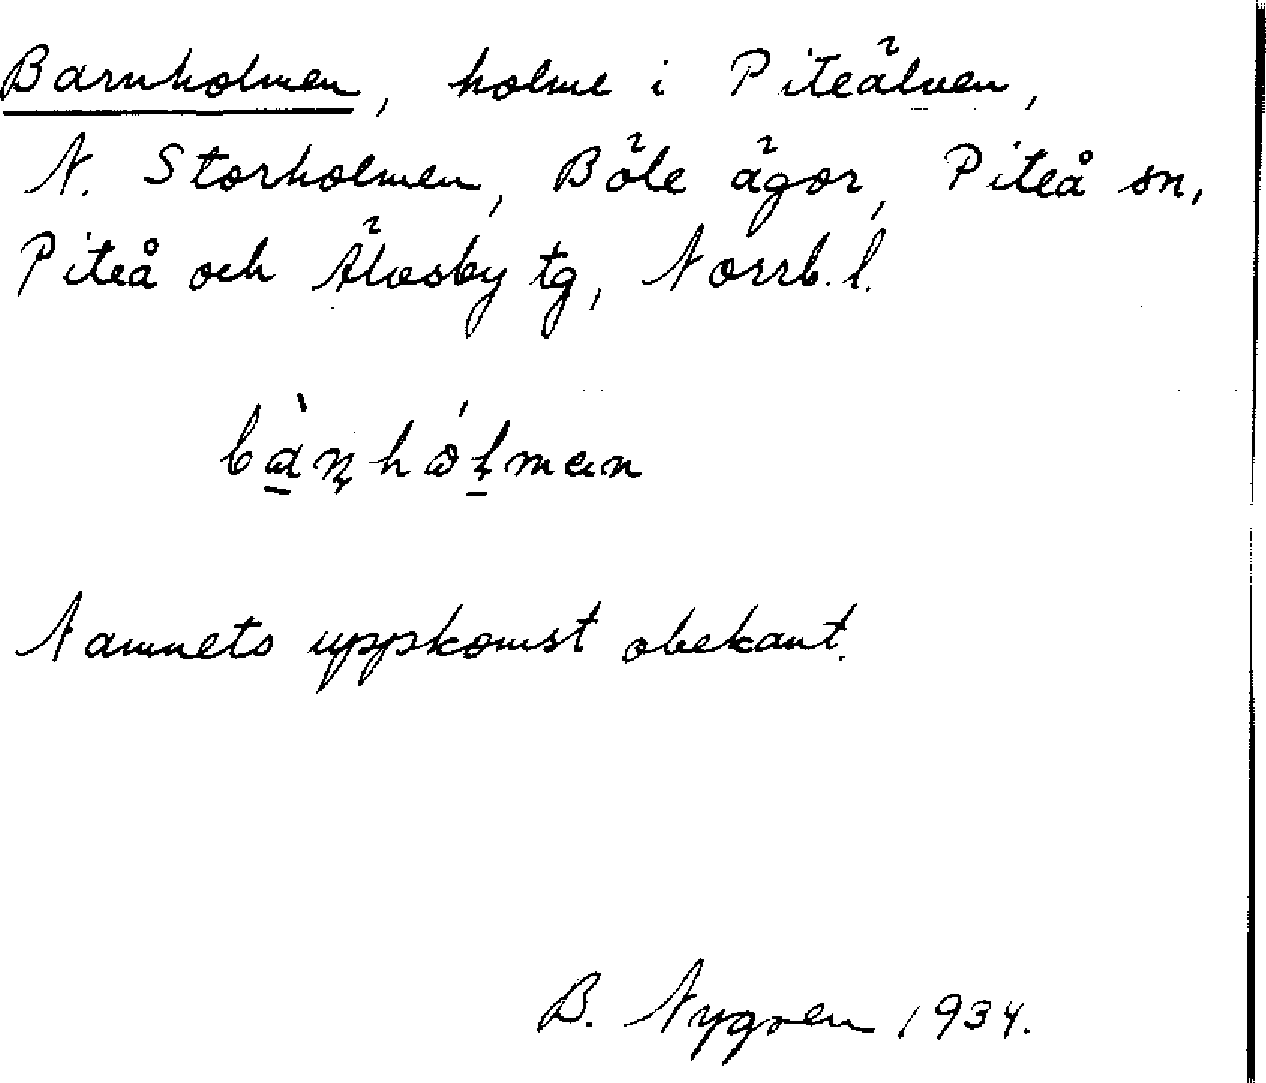 Barnholmen, holme i Piteälven,
N. Storholmen, Böle ägor, Piteå sn,
Piteå och Älvsby tg, Norrb. l.
bà̱ɳhɷ́ɽ̱mɐn
Namnets uppkomst obekant.
B. Nygren 1934.